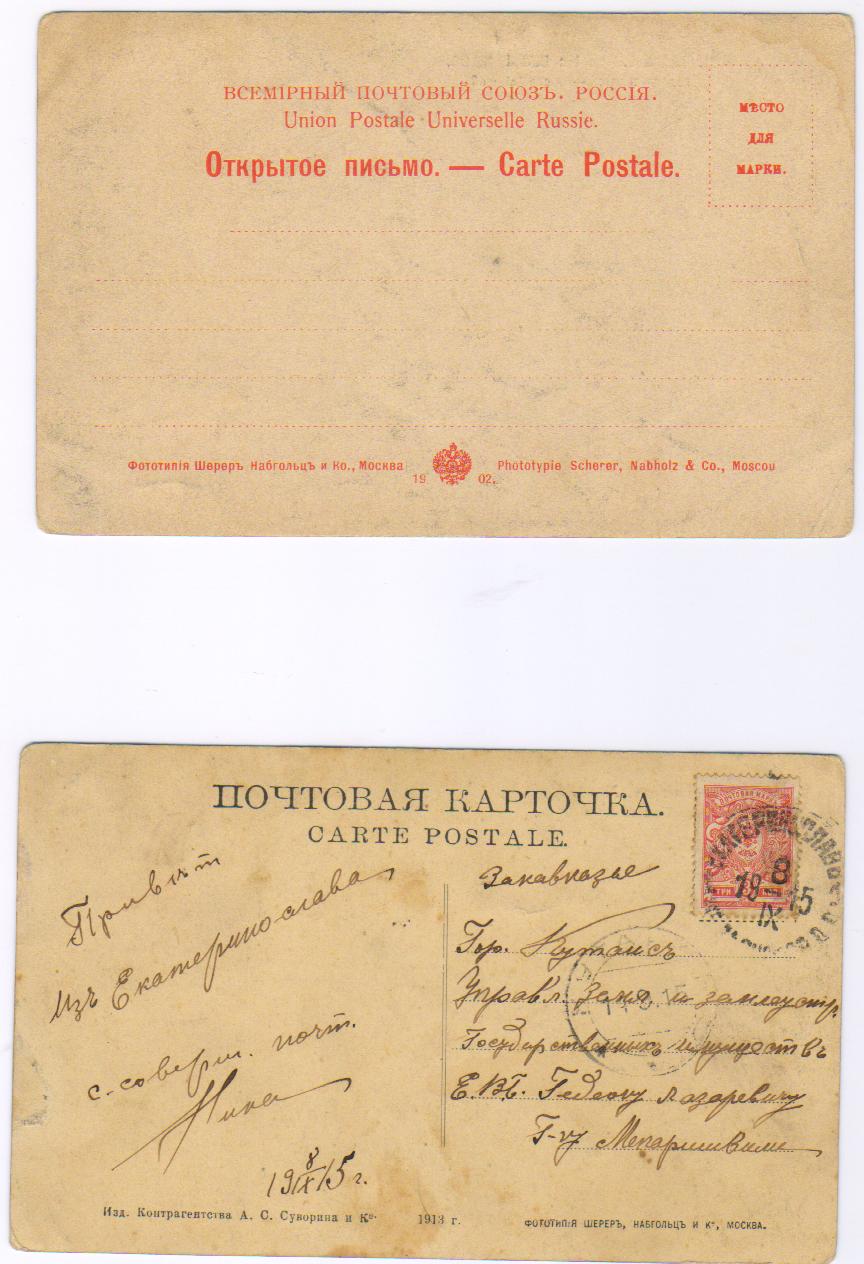 ВСЕМІРНЫЙ ПОЧТОВЫЙ СОЮЗЪ. РОССІЯ.
Union Postale Universelle Russie.
Открытое письмо. — Carte Postale.
МѢСТО
ДЛЯ
МАРКИ.
Фототипія Шереръ Набгольцъ и Ко., Москва
19 02.
Phototypie Scherer, Nabholz & Co., Moscou
ПОЧТОВАЯ КАРТОЧКА.
CARTE POSTALE.
Привѣт
Изъ Екатеринослава
с-соверш. почт.
Нина
19 8/IX 15 г.
Закавказье
Гор. Кутаисъ
Управл.Земл. и землеустр.
Государственныхъ имуществъ
Е.В.Б. Гедеону Лазаревичу
Г-ну
ПОЧТОВАЯ МАРКА
ТРИ
8
19 15
IX
Изд. Контрагентства А. С. Суворина и Ко.
1913 г.
ФОТОТИПІЯ ШЕРЕРЪ, НАБГОЛЬЦЪ И Ко, МОСКВА.